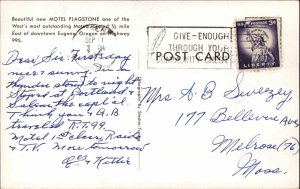 Beautiful new MOTEL FLAGSTONE one of the
West's most outstanding Motels located ½ mile
East of downtown Eugene, Oregon on Highway
99S.
SEP
GIVE-ENOUGH
THROUGH YOUR
POST CARD
3¢
LIBERTY
Dear Sis. First day
nice & sunny.
Thunder storm to night
Stoped at Portland &
Salem the capital.
Thank you & A.B
traveled RT. 99
Motel 1st class Radio
& T.V. More tomorrow
& Kittie
Mrs A B Swezey
177 Bellevue Ave
Melrose (76)
Mass.